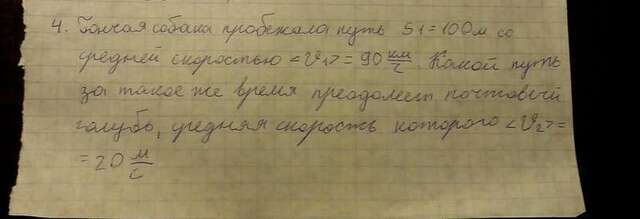 4. Гончая собака пробежала путь S1=100м со
средней скоростью <V1>=90 км/ч. Какой путь
за такое же время преодолеет почтовый
голубь, средняя скорость которого <V2>=
=20 м/с